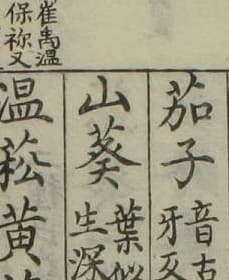 崔禹温
保祢又
茄子
音
牙
山葵
葉似
生深
温菘黄